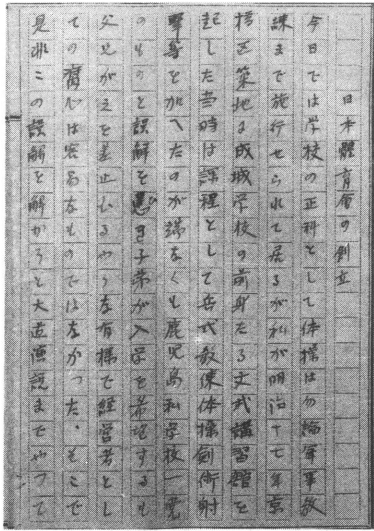 日本體育會の創立
今日では学校の正科として体操は勿論軍事教
練まで施行せられて居るが私が明治十七年京
橋区築地に成城学校の前身たる文武講習館を
起した当時は課程として兵式教練体操剣術射
撃等を加へたのが端なくも鹿児島私学校一党
のものと誤解を惹き子弟が入学を希望するも
父兄が之を差止むるやうな有様で経営者とし
ての腐心は容易なものではなかつた。そこで
是非この誤解を解かうと大道演説までやつて